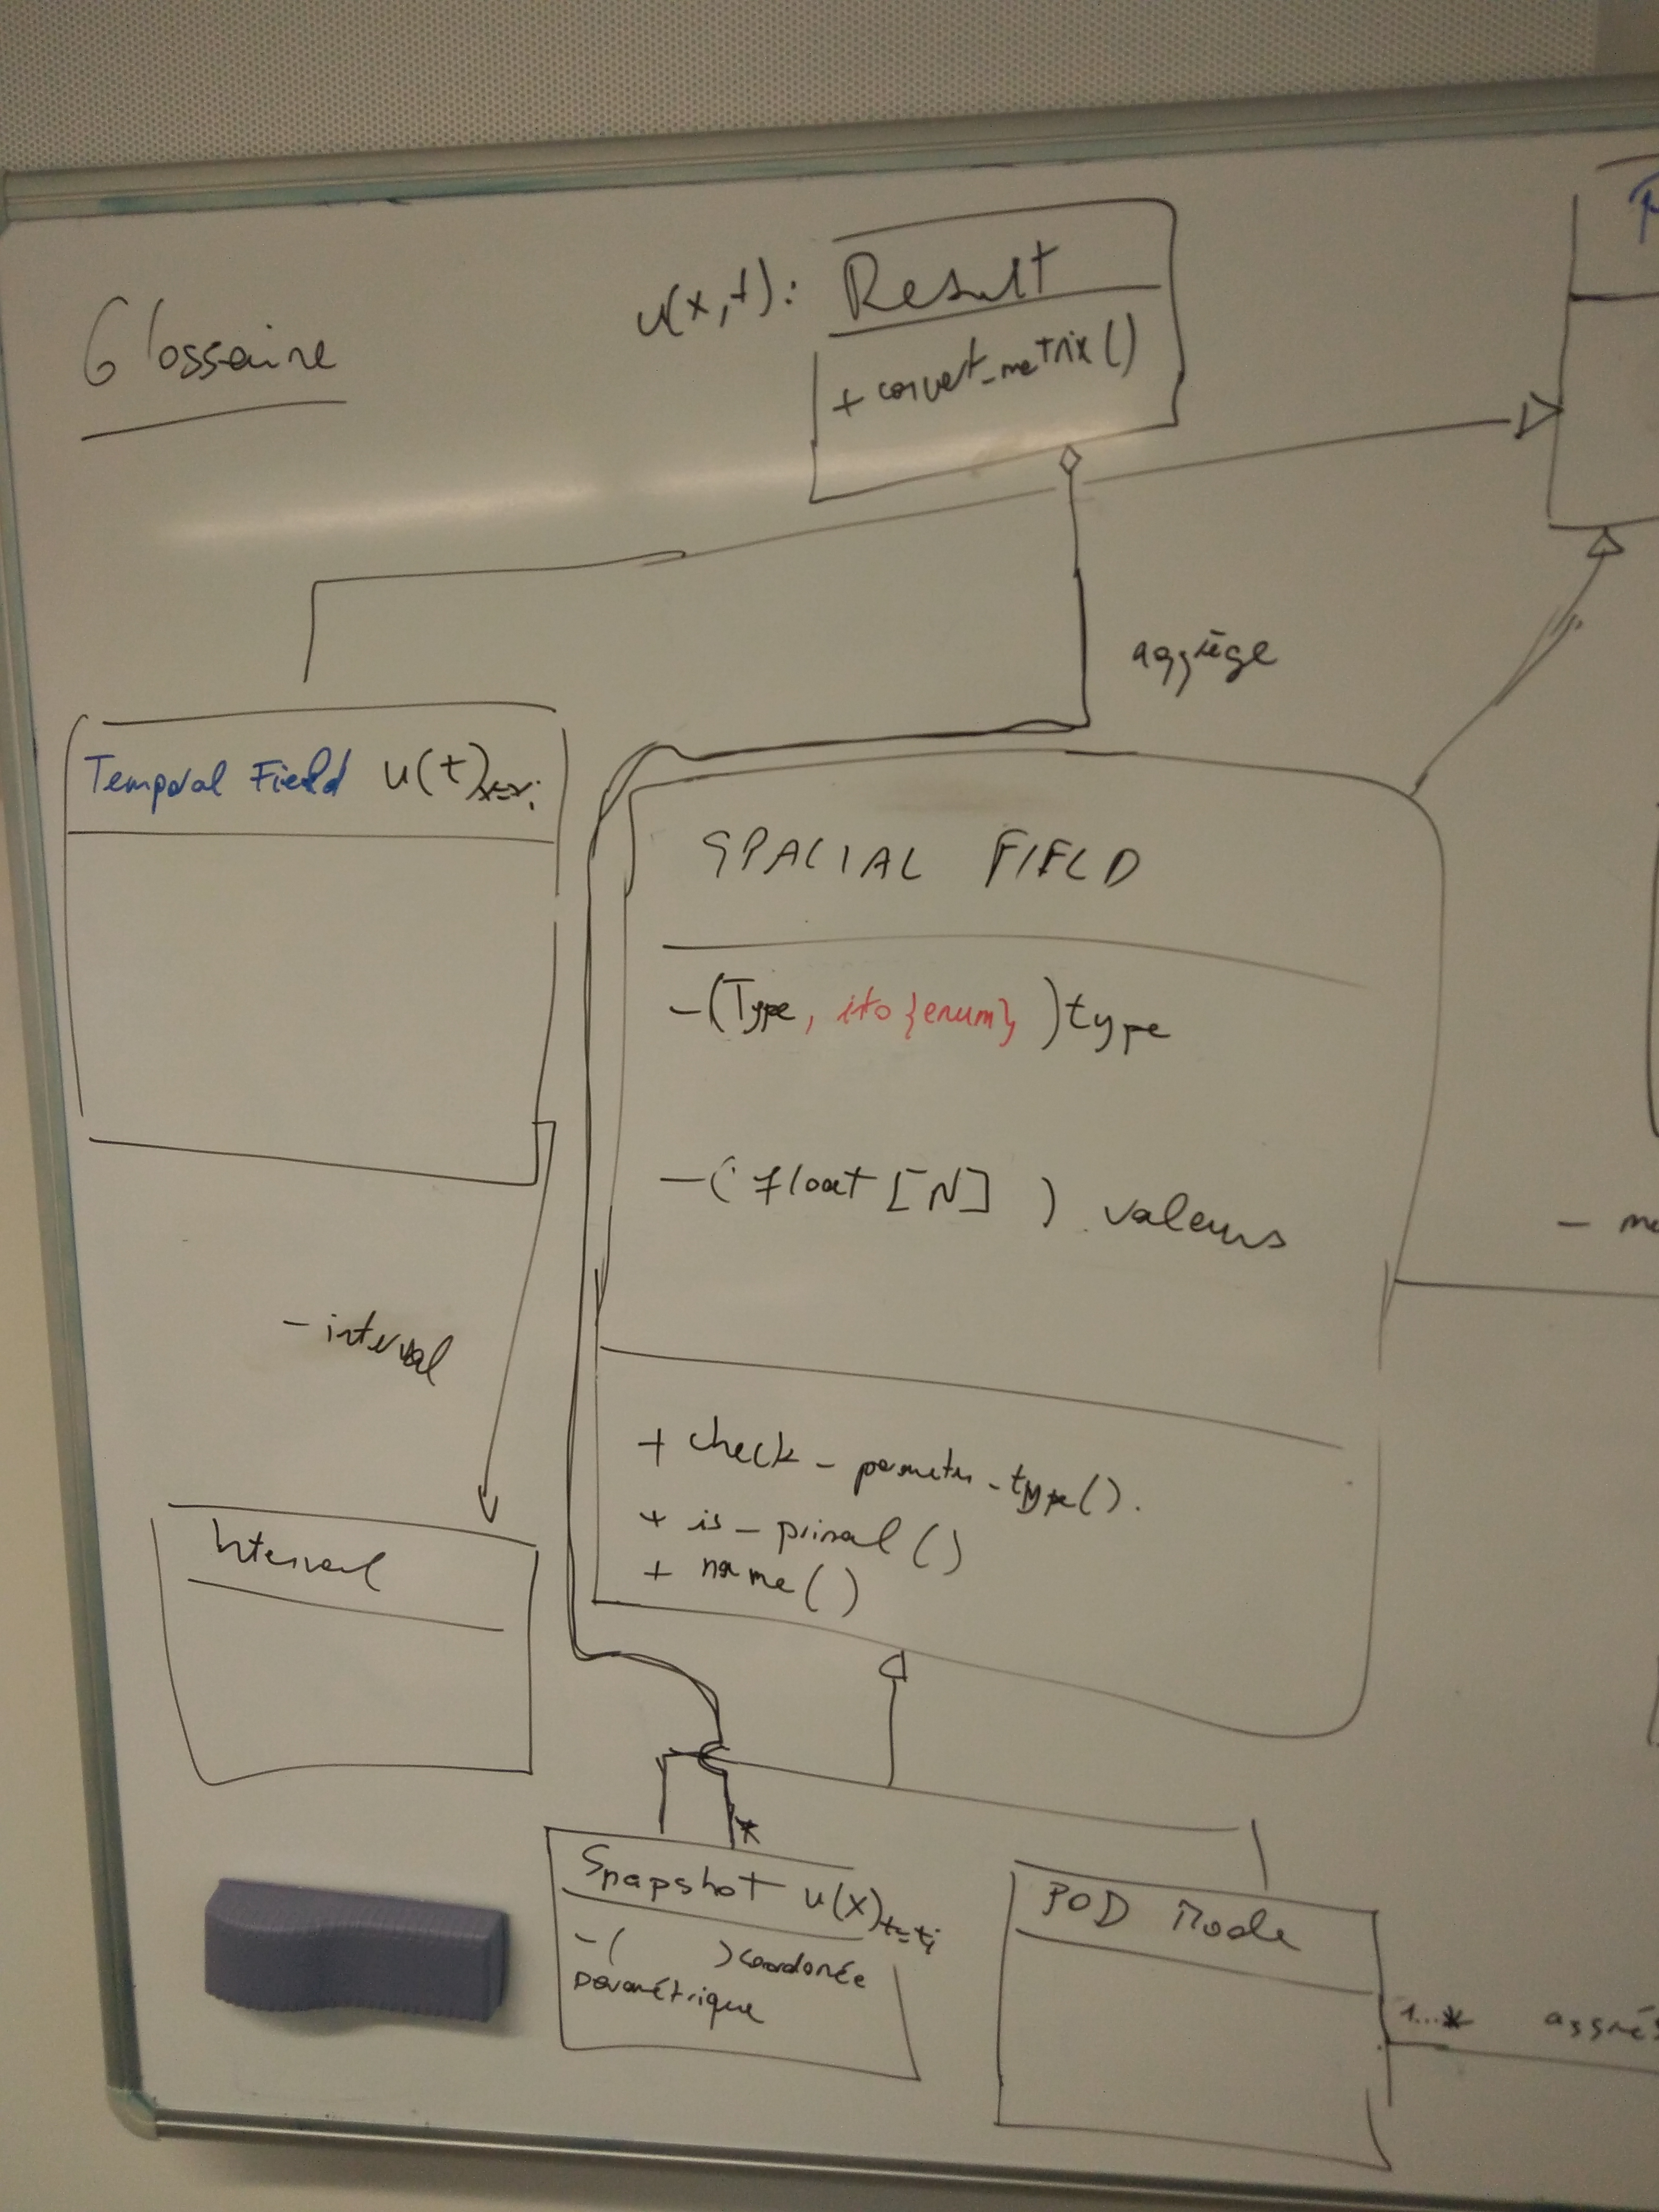 Glossaire
u(x,t): Result
+ convert_metrix()
aggrège
Temporal Field u(t)x=xi
SPACIAL FIELD
-(Type, ito {enum} ) type
-( float [N] ) valeurs
- interval
+ check_parameter_type().
+ is_primal()
+ name()
Interval
*
Snapshot u(x)t=ti
-( ) coordonée
paramétrique
POD Mode
1...*